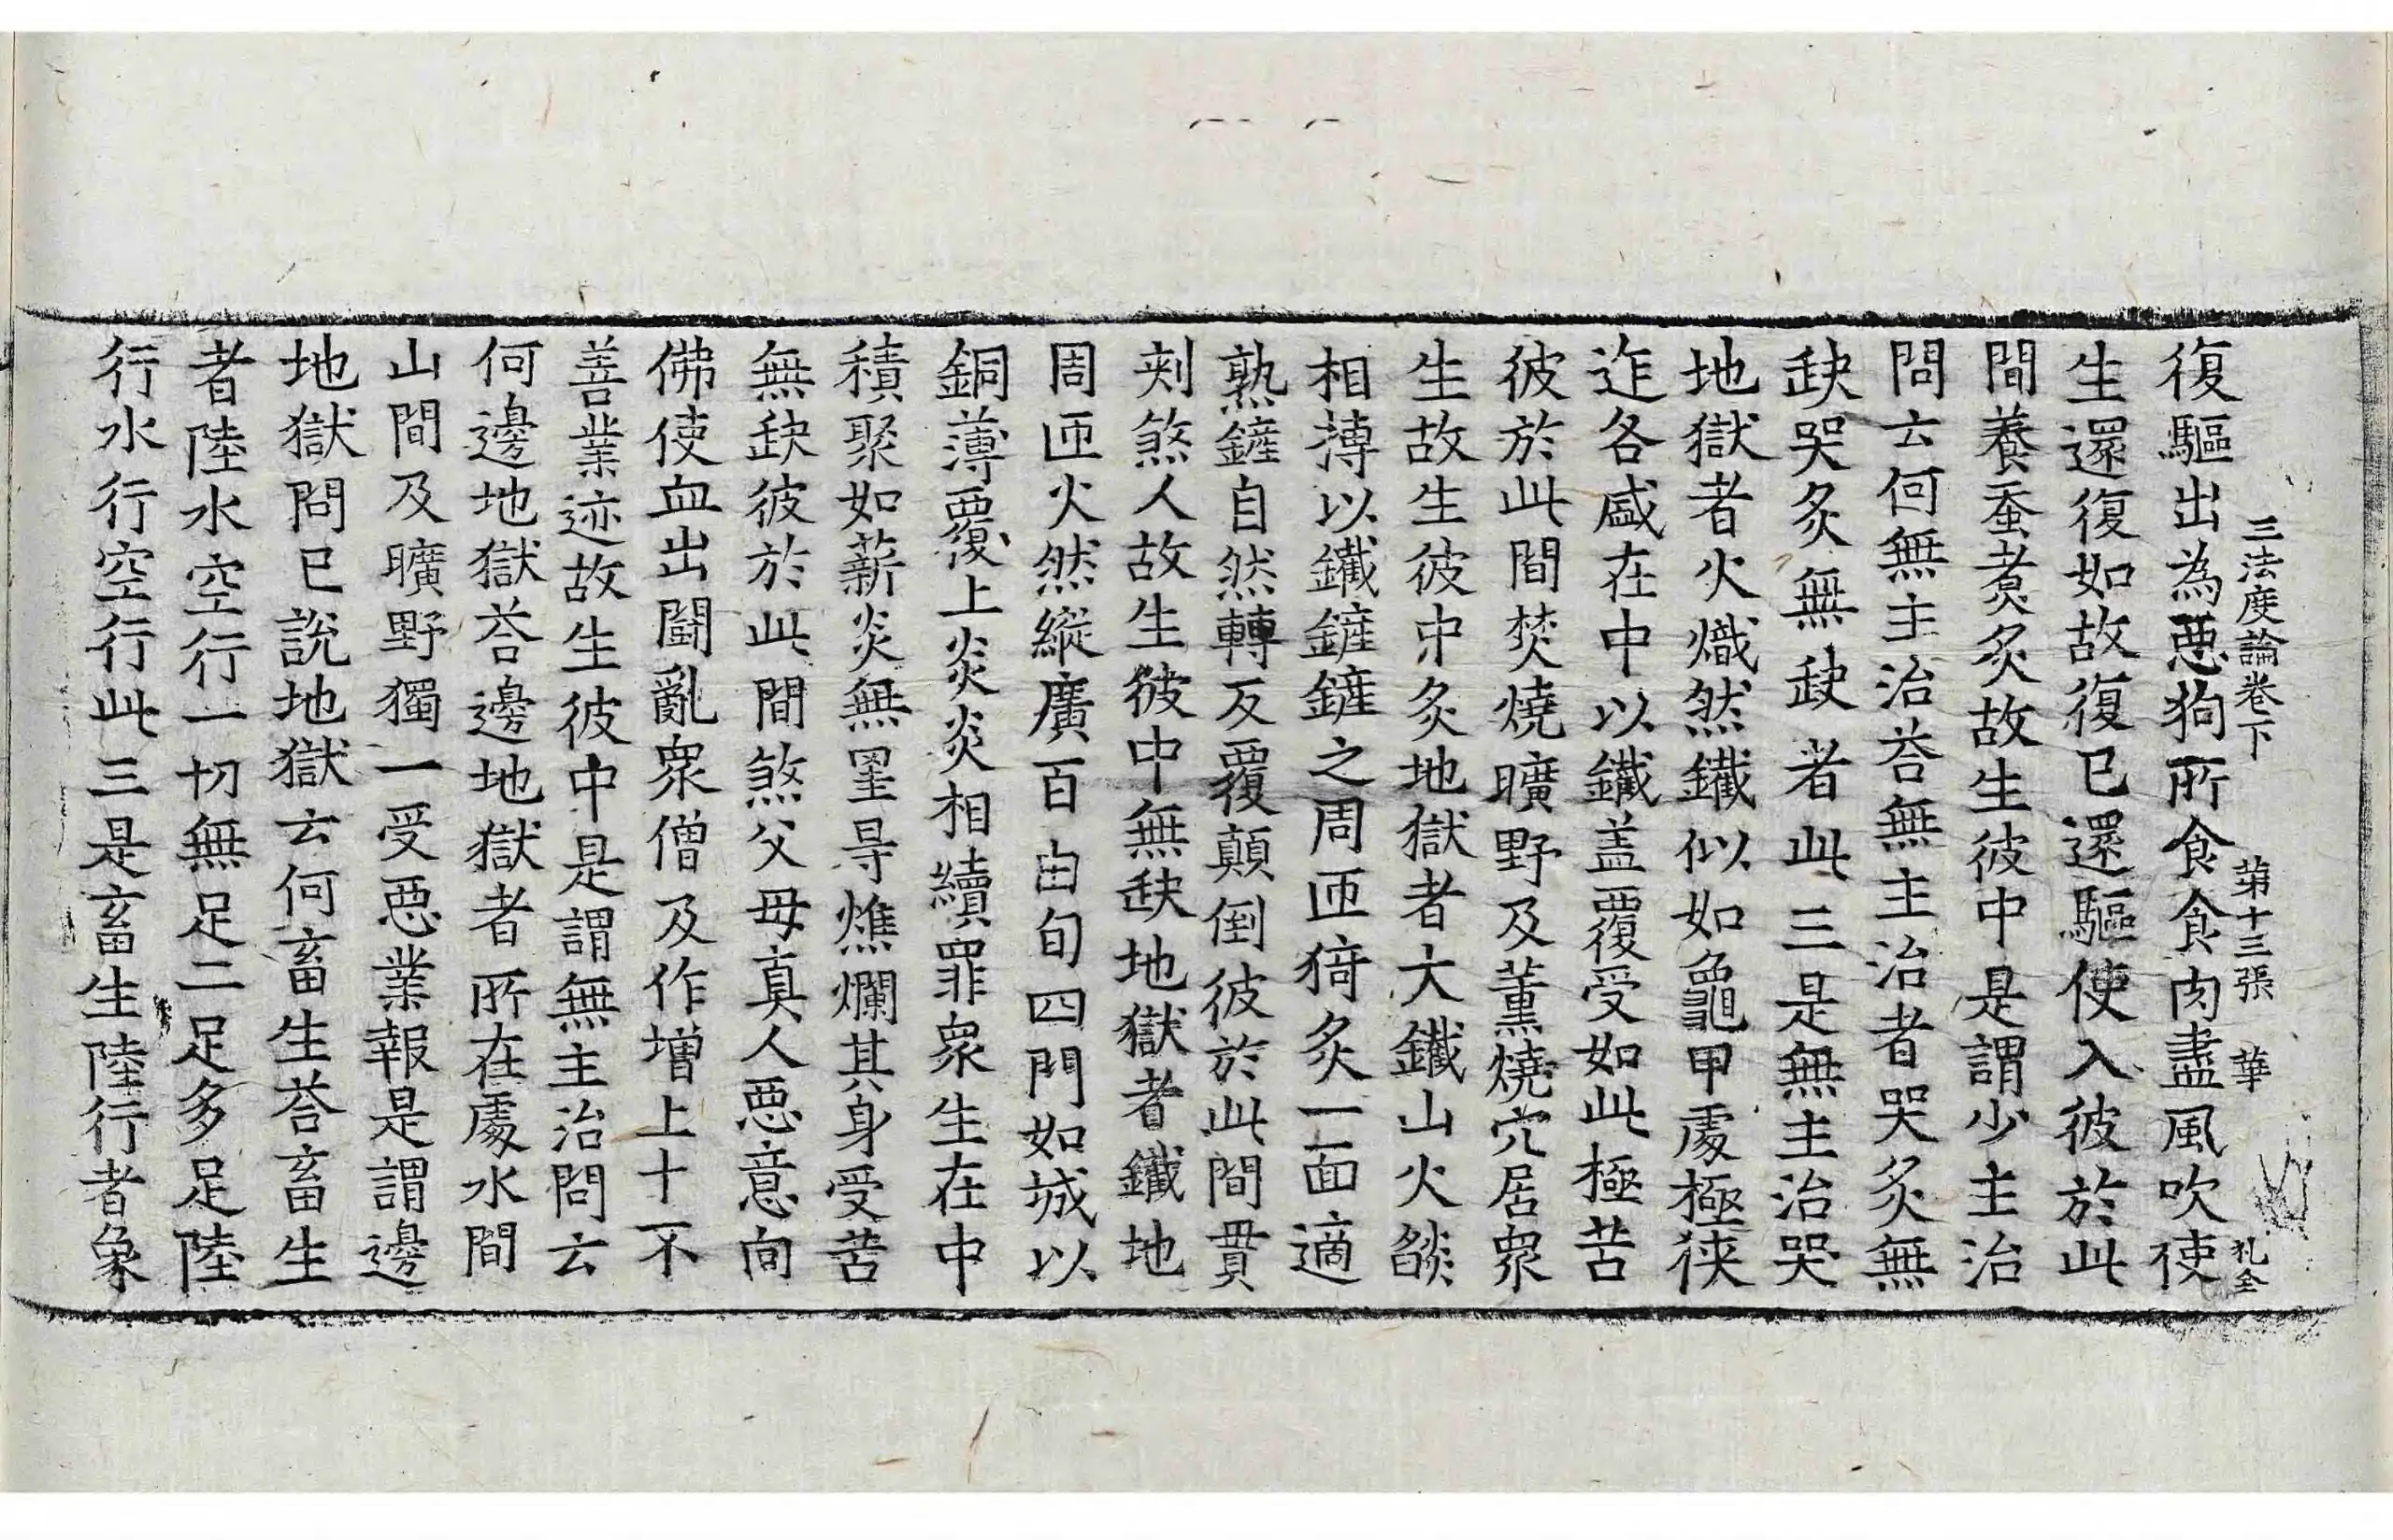 三法度論卷下 苐十三張 華 孔全
復驅出為惡狗所食食肉盡風吹使
生還復如故復已還驅使入彼於此
間養蚕煮炙故生彼中是謂少主治
問云何無主治荅無主治者哭炙無
缺哭炙無缺者此三是無主治哭
地獄者火熾然鐵似如龜甲處極狹
迮各盛在中以鐵盖覆受如此極苦
彼於此間焚燒曠野及薰燒穴居衆
生故生彼中炙地獄者大鐵山火燄
相搏以鐵鏟鏟之周匝猗炙一面適
熟鏟自然轉反覆顛倒彼於此間貫
刾煞人故生彼中無缺地獄者鐵地
周匝火然縱廣百由旬四門如城以
銅薄覆上炎炎相續罪衆生在中
積聚如薪炎無罣㝵燋爛其身受苦
無缺彼於此間煞父母真人惡意向
佛使血出鬪亂衆僧及作增上十不
善業迹故生彼中是謂無主治問云
何邊地獄荅邊地獄者所在處水間
山間及曠野獨一受惡業報是謂邊
地獄問已說地獄云何畜生荅畜生
者陸水空行一切無足二足多足陸
行水行空行此三是畜生陸行者象